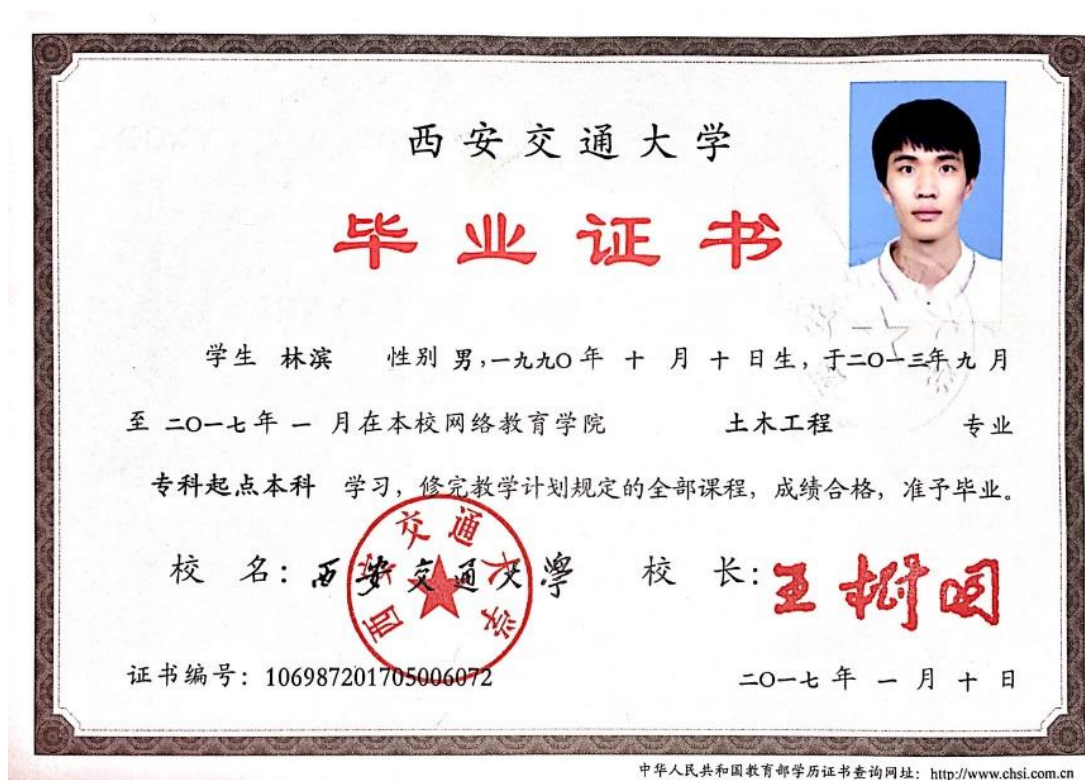 西安交通大学
毕业证书
学生 林滨 性别 男,一九九〇年 十 月 十 日生, 于二〇一三年九月
至 二〇一七年 一 月在本校网络教育学院 土木工程 专业
专科起点本科 学习, 修完教学计划规定的全部课程, 成绩合格, 准予毕业。
校 名: 西安交通大学 校 长: 王树国
西安交通大学
证书编号: 106987201705006072 二〇一七 年 一 月 十 日
中华人民共和国教育部学历证书查询网址: http://www.chsi.com.cn